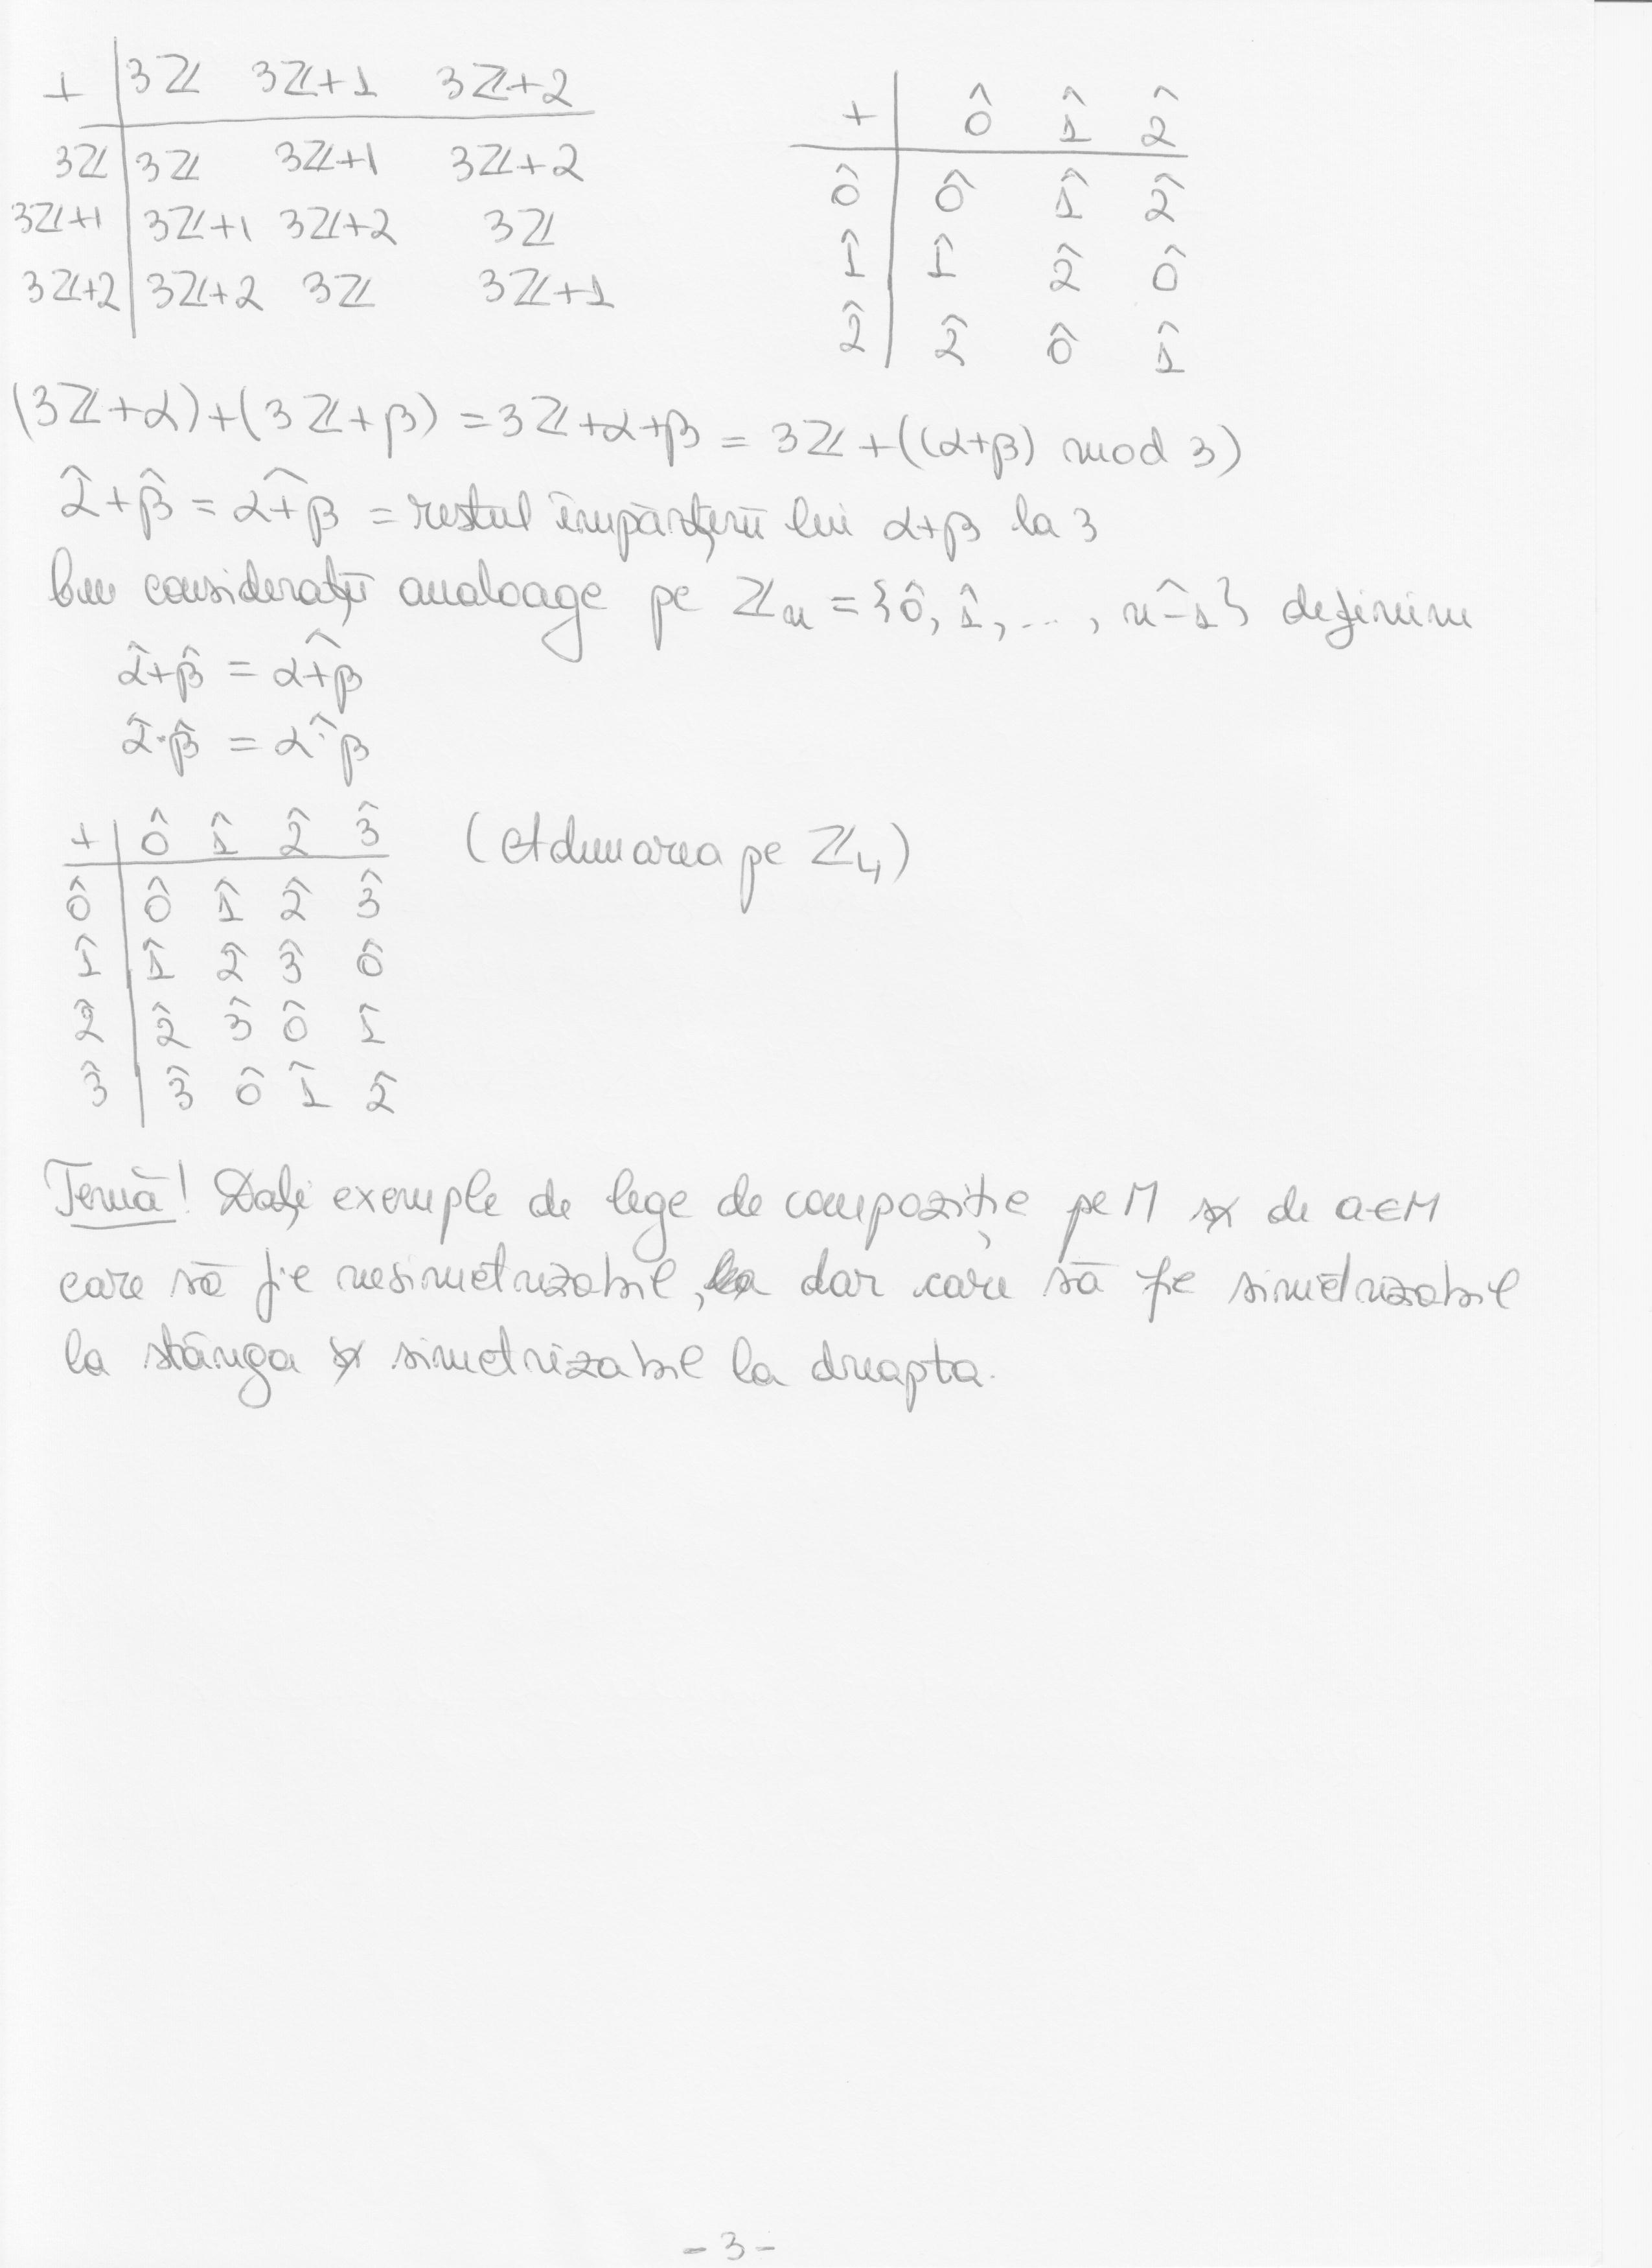 + | 3ℤ 3ℤ+1 3ℤ+2
3ℤ | 3ℤ 3ℤ+1 3ℤ+2
3ℤ+1 | 3ℤ+1 3ℤ+2 3ℤ
3ℤ+2 | 3ℤ+2 3ℤ 3ℤ+1
+ | 0̂ 1̂ 2̂
0̂ | 0̂ 1̂ 2̂
1̂ | 1̂ 2̂ 0̂
2̂ | 2̂ 0̂ 1̂
(3ℤ+α)+(3ℤ+β) = 3ℤ+α+β = 3ℤ+((α+β) mod 3)
α̂+β̂ = \widehat{α+β} = restul împărțirii lui α+β la 3
Cu considerații analoage pe ℤₙ = {0̂, 1̂, ..., \widehat{n-1}} definim
α̂+β̂ = \widehat{α+β}
α̂·β̂ = \widehat{α·β}
+ | 0̂ 1̂ 2̂ 3̂ (Adunarea pe ℤ₄)
0̂ | 0̂ 1̂ 2̂ 3̂
1̂ | 1̂ 2̂ 3̂ 0̂
2̂ | 2̂ 3̂ 0̂ 1̂
3̂ | 3̂ 0̂ 1̂ 2̂
Temă! Dați exemple de lege de compoziție pe M și de a∈M
care să fie nesimetrizabil, dar care să fie simetrizabil
la stânga și simetrizabil la dreapta.
- 3 -